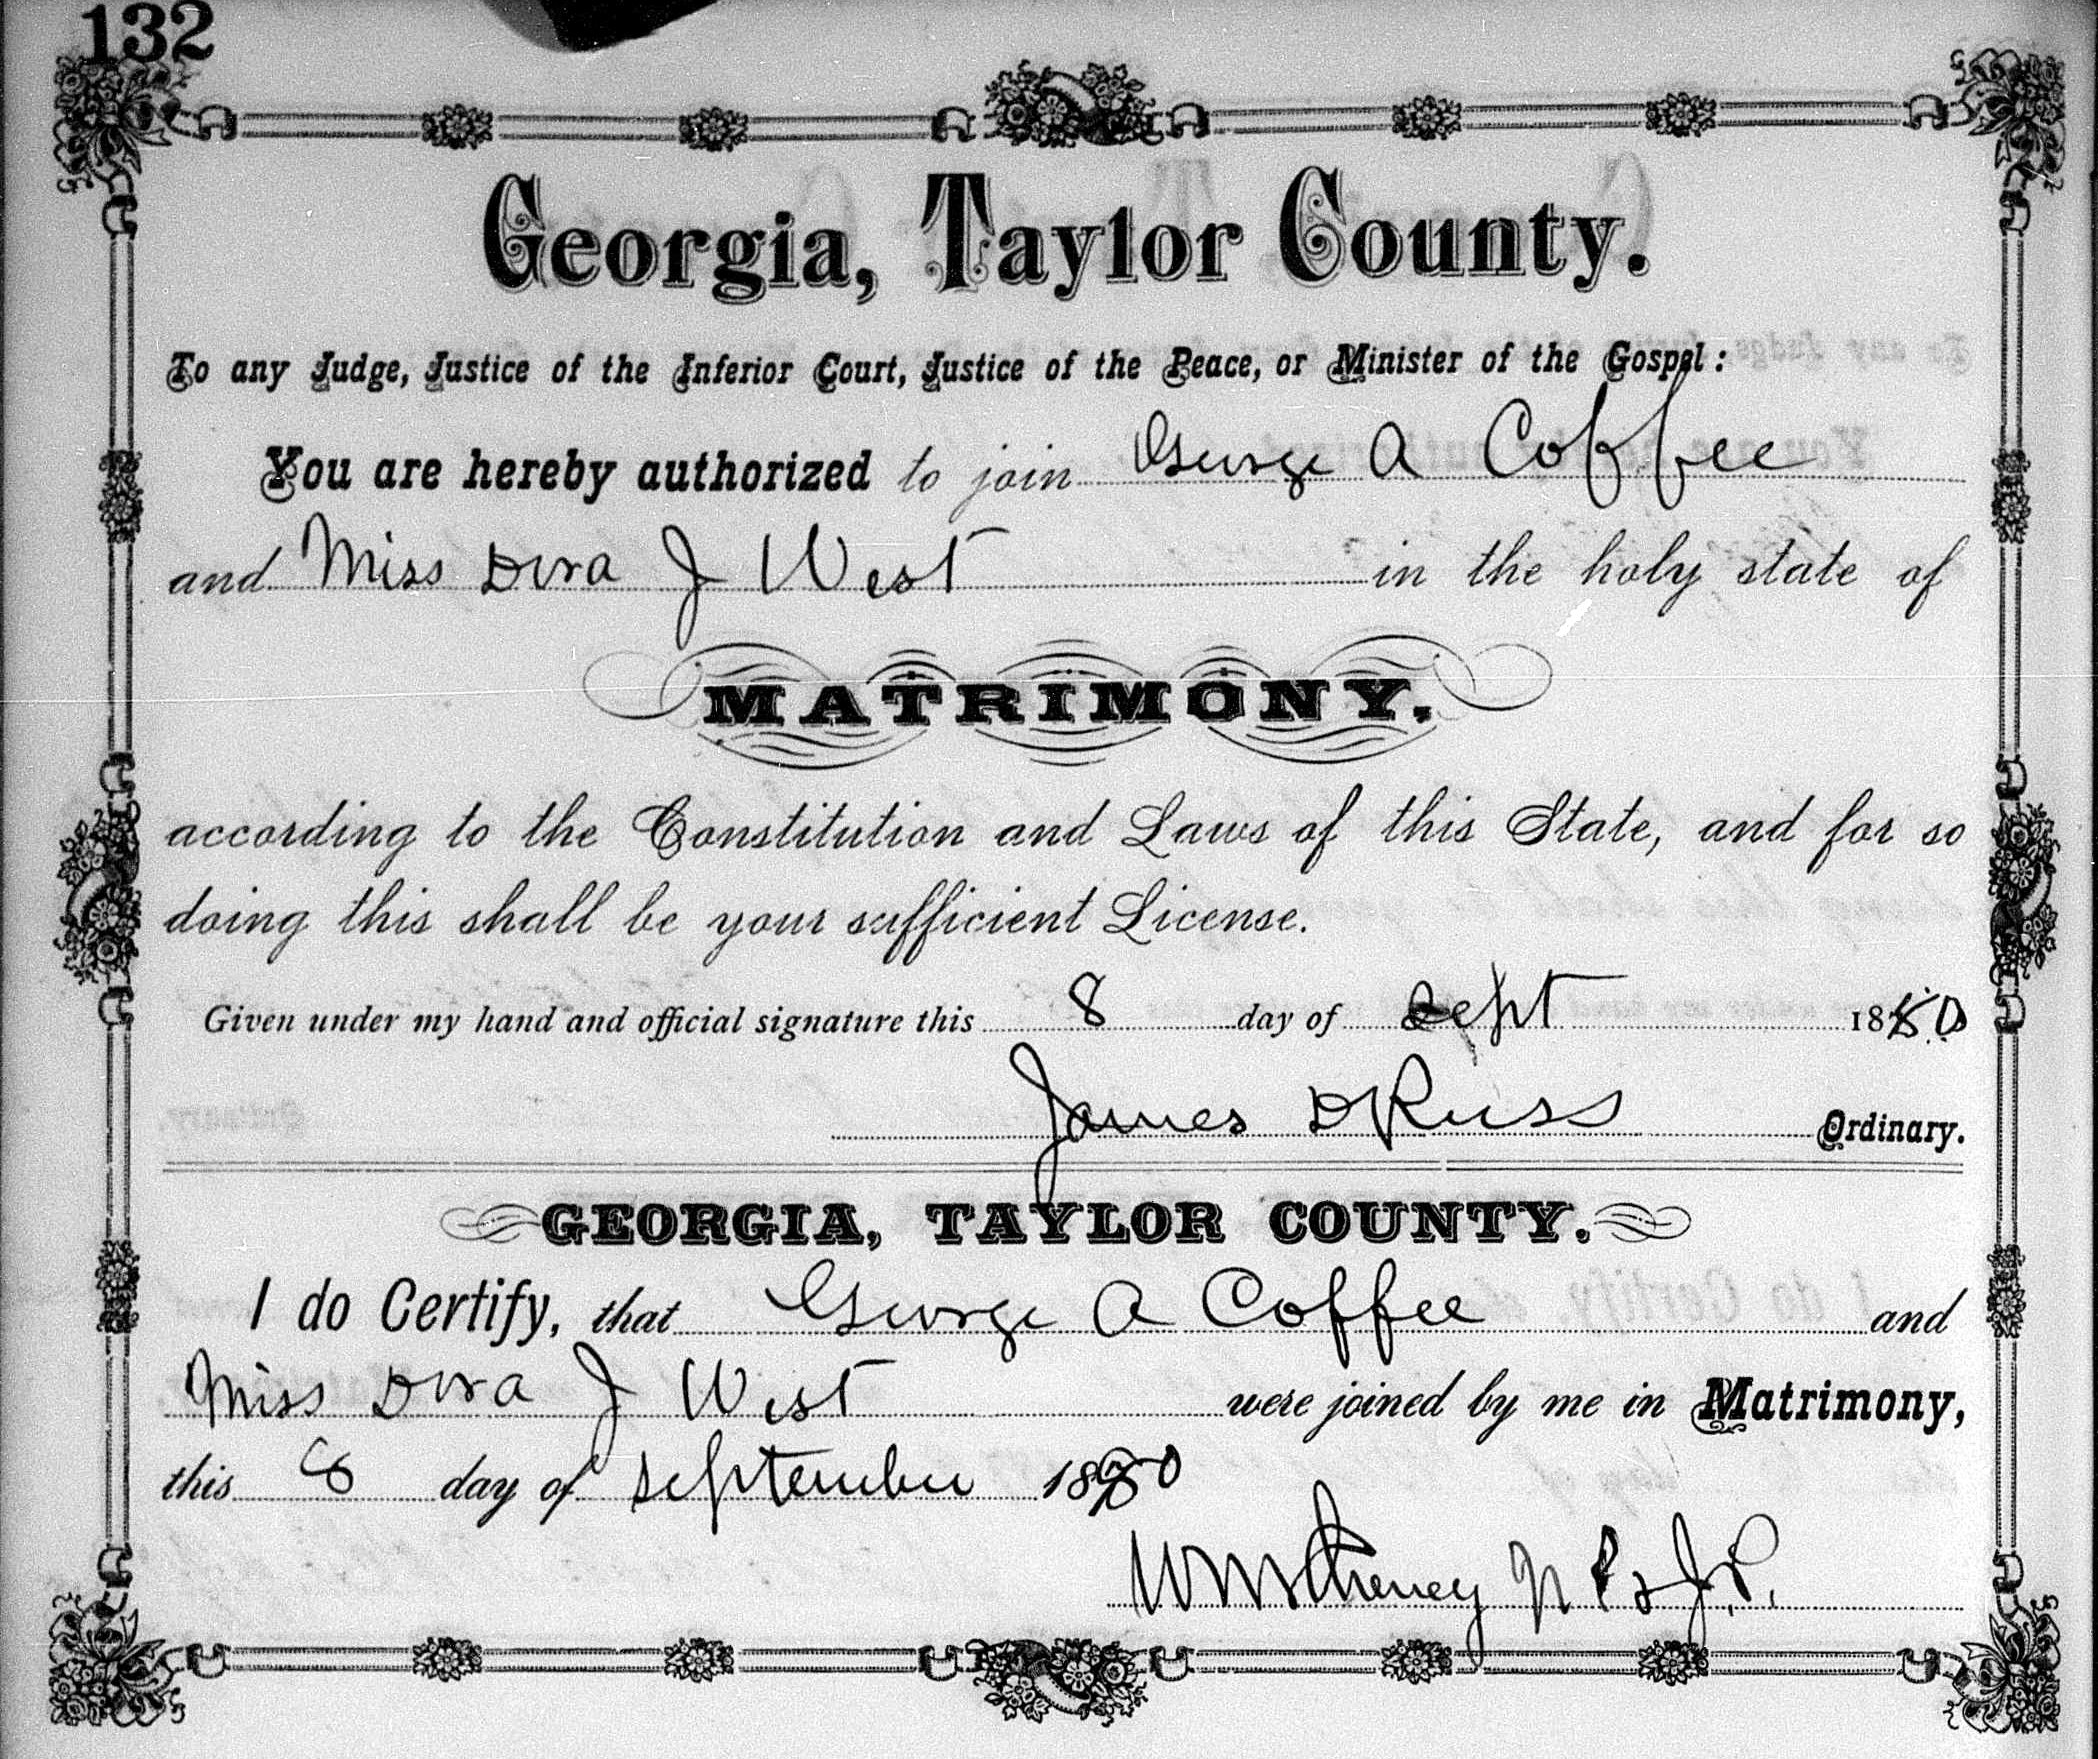 132
Georgia, Taylor County.
To any Judge, Justice of the Inferior Court, Justice of the Peace, or Minister of the Gospel:
You are hereby authorized to join George A Coffee
and Miss Dora J West in the holy state of
MATRIMONY,
according to the Constitution and Laws of this State, and for so
doing this shall be your sufficient License.
Given under my hand and official signature this 8 day of Sept 1880
James D Russ Ordinary.
GEORGIA, TAYLOR COUNTY.
I do Certify, that George A Coffee and
Miss Dora J West were joined by me in Matrimony,
this 8 day of September 1880
N P & J.P.